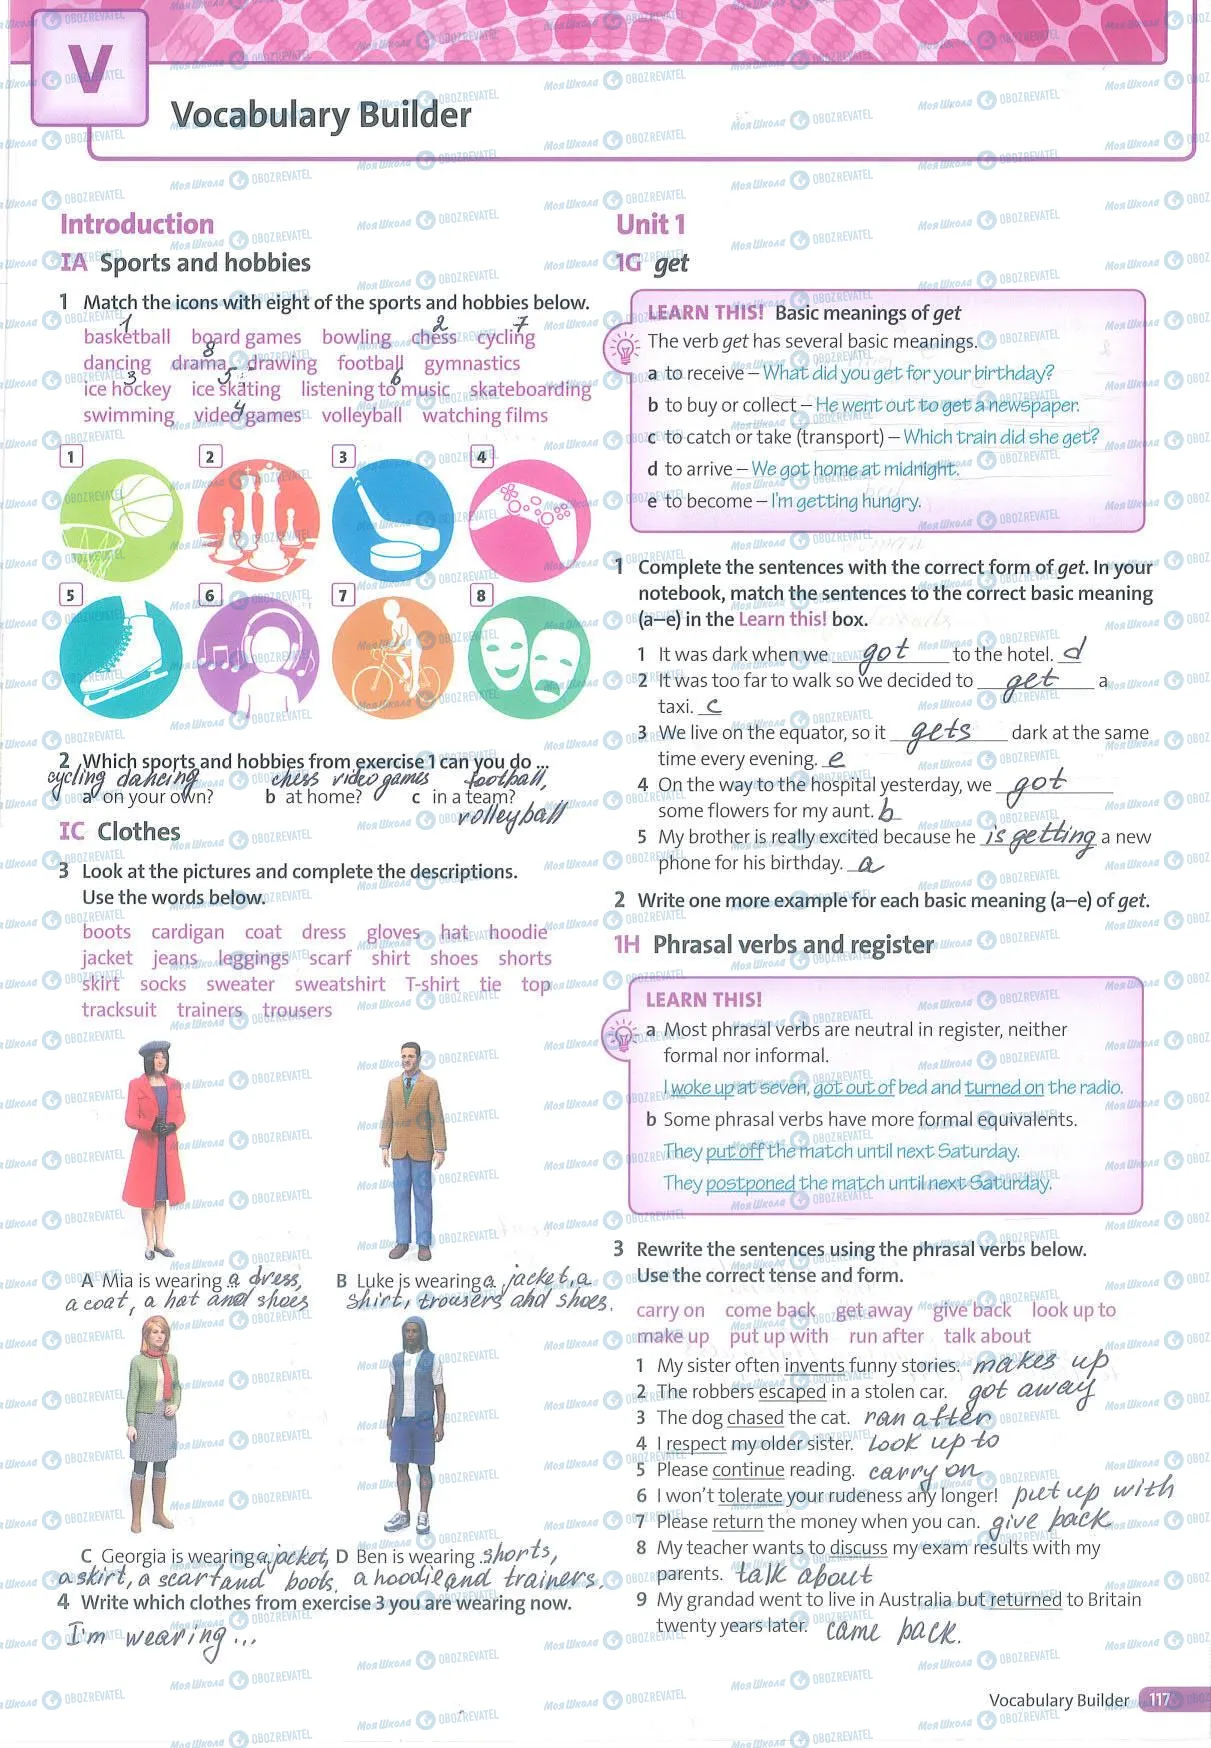 V
Vocabulary Builder
Introduction
IA Sports and hobbies
1 Match the icons with eight of the sports and hobbies below.
1 2 7
basketball board games bowling chess cycling
8
dancing drama drawing football gymnastics
3 5 6
ice hockey ice skating listening to music skateboarding
4
swimming video games volleyball watching films
1 2 3 4
5 6 7 8
2 Which sports and hobbies from exercise 1 can you do ...
cycling dancing chess video games football,
a on your own? b at home? c in a team?
volleyball
IC Clothes
3 Look at the pictures and complete the descriptions.
Use the words below.
boots cardigan coat dress gloves hat hoodie
jacket jeans leggings scarf shirt shoes shorts
skirt socks sweater sweatshirt T-shirt tie top
tracksuit trainers trousers
A Mia is wearing ... a dress,
a coat, a hat and shoes
B Luke is wearing a jacket, a
shirt, trousers and shoes.
C Georgia is wearing a jacket,
a skirt, a scarf and boots.
D Ben is wearing ... shorts,
a hoodie and trainers.
4 Write which clothes from exercise 3 you are wearing now.
I'm wearing ...
Unit 1
1G get
LEARN THIS! Basic meanings of get
The verb get has several basic meanings.
a to receive – What did you get for your birthday?
b to buy or collect – He went out to get a newspaper.
c to catch or take (transport) – Which train did she get?
d to arrive – We got home at midnight.
e to become – I'm getting hungry.
1 Complete the sentences with the correct form of get. In your
notebook, match the sentences to the correct basic meaning
(a–e) in the Learn this! box.
1 It was dark when we got to the hotel. d
2 It was too far to walk so we decided to get a
taxi. c
3 We live on the equator, so it gets dark at the same
time every evening. e
4 On the way to the hospital yesterday, we got
some flowers for my aunt. b
5 My brother is really excited because he is getting a new
phone for his birthday. a
2 Write one more example for each basic meaning (a–e) of get.
1H Phrasal verbs and register
LEARN THIS!
a Most phrasal verbs are neutral in register, neither
formal nor informal.
I woke up at seven, got out of bed and turned on the radio.
b Some phrasal verbs have more formal equivalents.
They put off the match until next Saturday.
They postponed the match until next Saturday.
3 Rewrite the sentences using the phrasal verbs below.
Use the correct tense and form.
carry on come back get away give back look up to
make up put up with run after talk about
1 My sister often invents funny stories. makes up
2 The robbers escaped in a stolen car. got away
3 The dog chased the cat. ran after
4 I respect my older sister. look up to
5 Please continue reading. carry on
6 I won't tolerate your rudeness any longer! put up with
7 Please return the money when you can. give back
8 My teacher wants to discuss my exam results with my
parents. talk about
9 My grandad went to live in Australia but returned to Britain
twenty years later. came back.
Vocabulary Builder 117
Моя Школа OBOZREVATEL